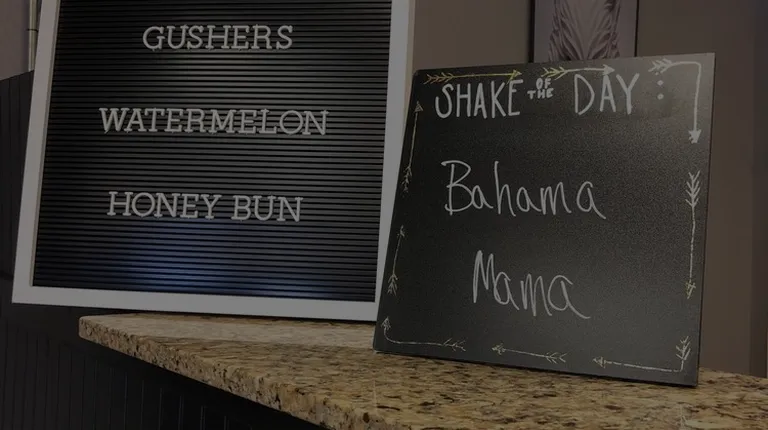 GUSHERS
WATERMELON
HONEY BUN
SHAKE OF THE DAY:
Bahama
Mama